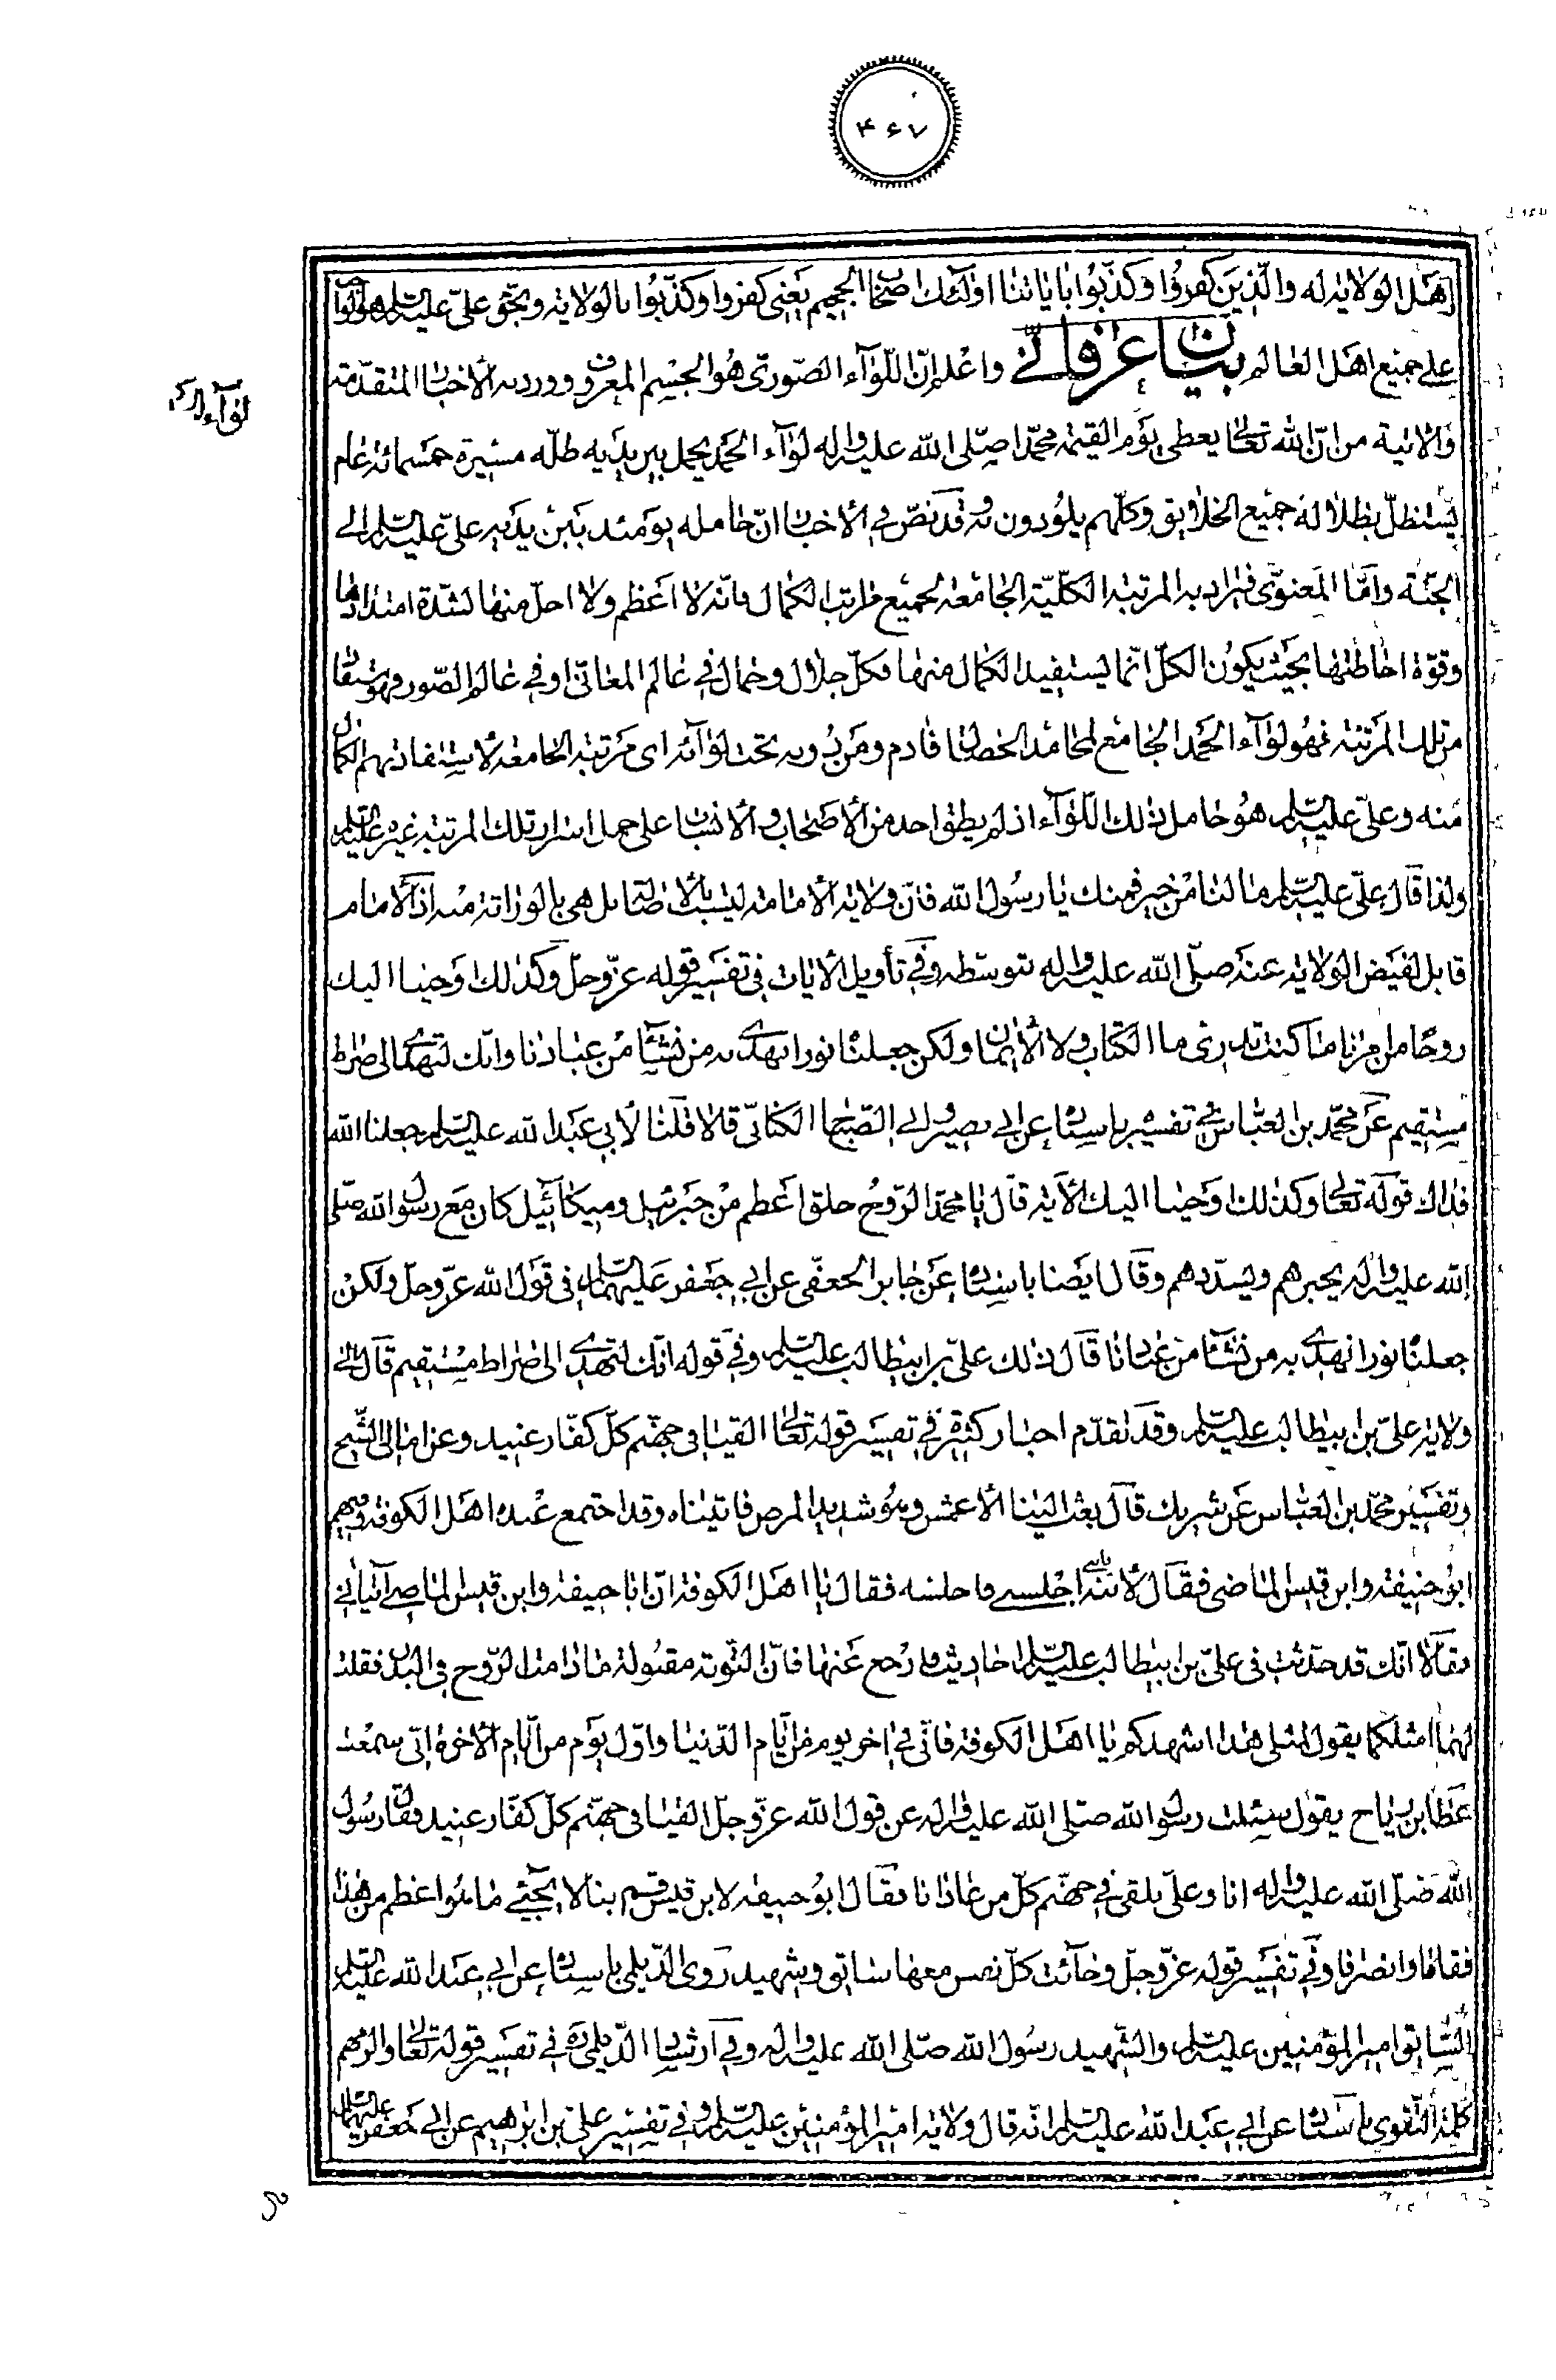 ۴۶۷
اهل الولاية له والذين كفروا وكذبوا باياتنا اولئك اصحاب الجحيم يعنى كفروا وكذبوا بالولاية وبحق على عليه السلم هو
على جميع اهل العالم بيان عرفانى واعلم ان اللوآء الصورى هو الجسم المعروف وورد به الاخبار المتقدمة
والاتية من ان الله تعالى يعطى يوم القيمة محمدا صلى الله عليه واله لوآء الحمد يحمل بين يديه ظله مسيرة خمسمائة عام
يستظل بظلاله جميع الخلايق وكلهم يلوذون به وقد نص فى الاخبار ان حامله يومئذ بين يديه على عليه السلم الى
الجنة واما المعنوى فيراد به المرتبة الكلية الجامعة لجميع مراتب الكمال فانه لا اعظم ولا اجل منها لشدة امتدادها
وقوة احاطتها بحيث يكون الكل انما يستفيد الكمال منها فكل جلال وجمال فى عالم المعانى او فى عالم الصور فهو
من تلك المرتبة فهو لوآء الحمد الجامع لمحامد الخصال فادم ومن دونه تحت لوآئه اى مرتبة الجامعة لاستفادتهم الكمال
منه وعلى عليه السلم هو حامل ذلك اللوآء اذ لم يطق احد من الاصحاب والانساب على حمل اسرار تلك المرتبة غيره عليه السلم
ولذا قال على عليه السلم ما لنا من خير فمنك يا رسول الله فان ولاية الامامة ليست بالاصالة بل هى بالوراثة منه اذ الامام
قابل لفيض الولاية عنه صلى الله عليه واله بتوسطه وفى تأويل الايات فى تفسير قوله عز وجل وكذلك اوحينا اليك
روحا من امرنا ما كنت تدرى ما الكتاب ولا الايمان ولكن جعلنا نورا نهدى به من نشآء من عبادنا وانك لتهدى الى صراط
مستقيم عن محمد بن العباس فى تفسيره باسناده عن ابى بصير وابى الصباح الكنانى قالا قلنا لابى عبد الله عليه السلم جعلنا الله
فداك قوله تعالى وكذلك اوحينا اليك الاية قال يا محمد الروح خلق اعظم من جبرئيل وميكآئيل كان مع رسول الله صلى
الله عليه واله يخبرهم ويسددهم وقال ايضا باسناده عن جابر الجعفى عن ابى جعفر عليهما السلم فى قول الله عز وجل ولكن
جعلنا نورا نهدى به من نشآء من عبادنا قال ذلك على بن ابيطالب عليه السلم وفى قوله انك لتهدى الى صراط مستقيم قال الى
ولاية على بن ابيطالب عليه السلم وقد تقدم اخبار كثيرة فى تفسير قوله تعالى القيا فى جهنم كل كفار عنيد وعن امالى الشيخ
وتفسير محمد بن العباس عن شريك قال بعث الينا الاعمش وهو شديد المرض فاتيناه وقد اجتمع عنده اهل الكوفة وفيهم
ابو حنيفة وابن قيس الماصر فقال لابنه يا بنى اجلسنى فاجلسه فقال يا اهل الكوفة ان ابا حنيفة وابن قيس الماصر اتيانى
فقالا انك قد حدثت فى على بن ابيطالب عليه السلم احاديث فارجع عنها فان التوبة مقبولة ما دامت الروح فى البدن فقلت
لهما امثلكما يقول لمثلى هذا اشهدكم يا اهل الكوفة فانى فى اخر يوم من ايام الدنيا واول يوم من ايام الاخرة انى سمعت
عطا بن رياح يقول سئلت رسول الله صلى الله عليه واله عن قول الله عز وجل القيا فى جهنم كل كفار عنيد فقال رسول
الله صلى الله عليه واله انا وعلى يلقى فى جهنم كل من عادانا فقال ابو حنيفة لابن قيس قم بنا لا يجيئ ما هو اعظم من هذا
فقاما وانصرفا وفى تفسير قوله عز وجل وجآئت كل نفس معها سائق وشهيد روى الديلمى باسناده عن ابى عبد الله عليه السلم
السائق امير المؤمنين عليه السلم والشهيد رسول الله صلى الله عليه واله وفى ارشاد الديلمى ره فى تفسير قوله تعالى والزمهم
كلمة التقوى باسناده عن ابى عبد الله عليه السلم انه قال ولاية امير المؤمنين عليه السلم وفى تفسير على بن ابرهيم عن ابى جعفر عليهما السلم